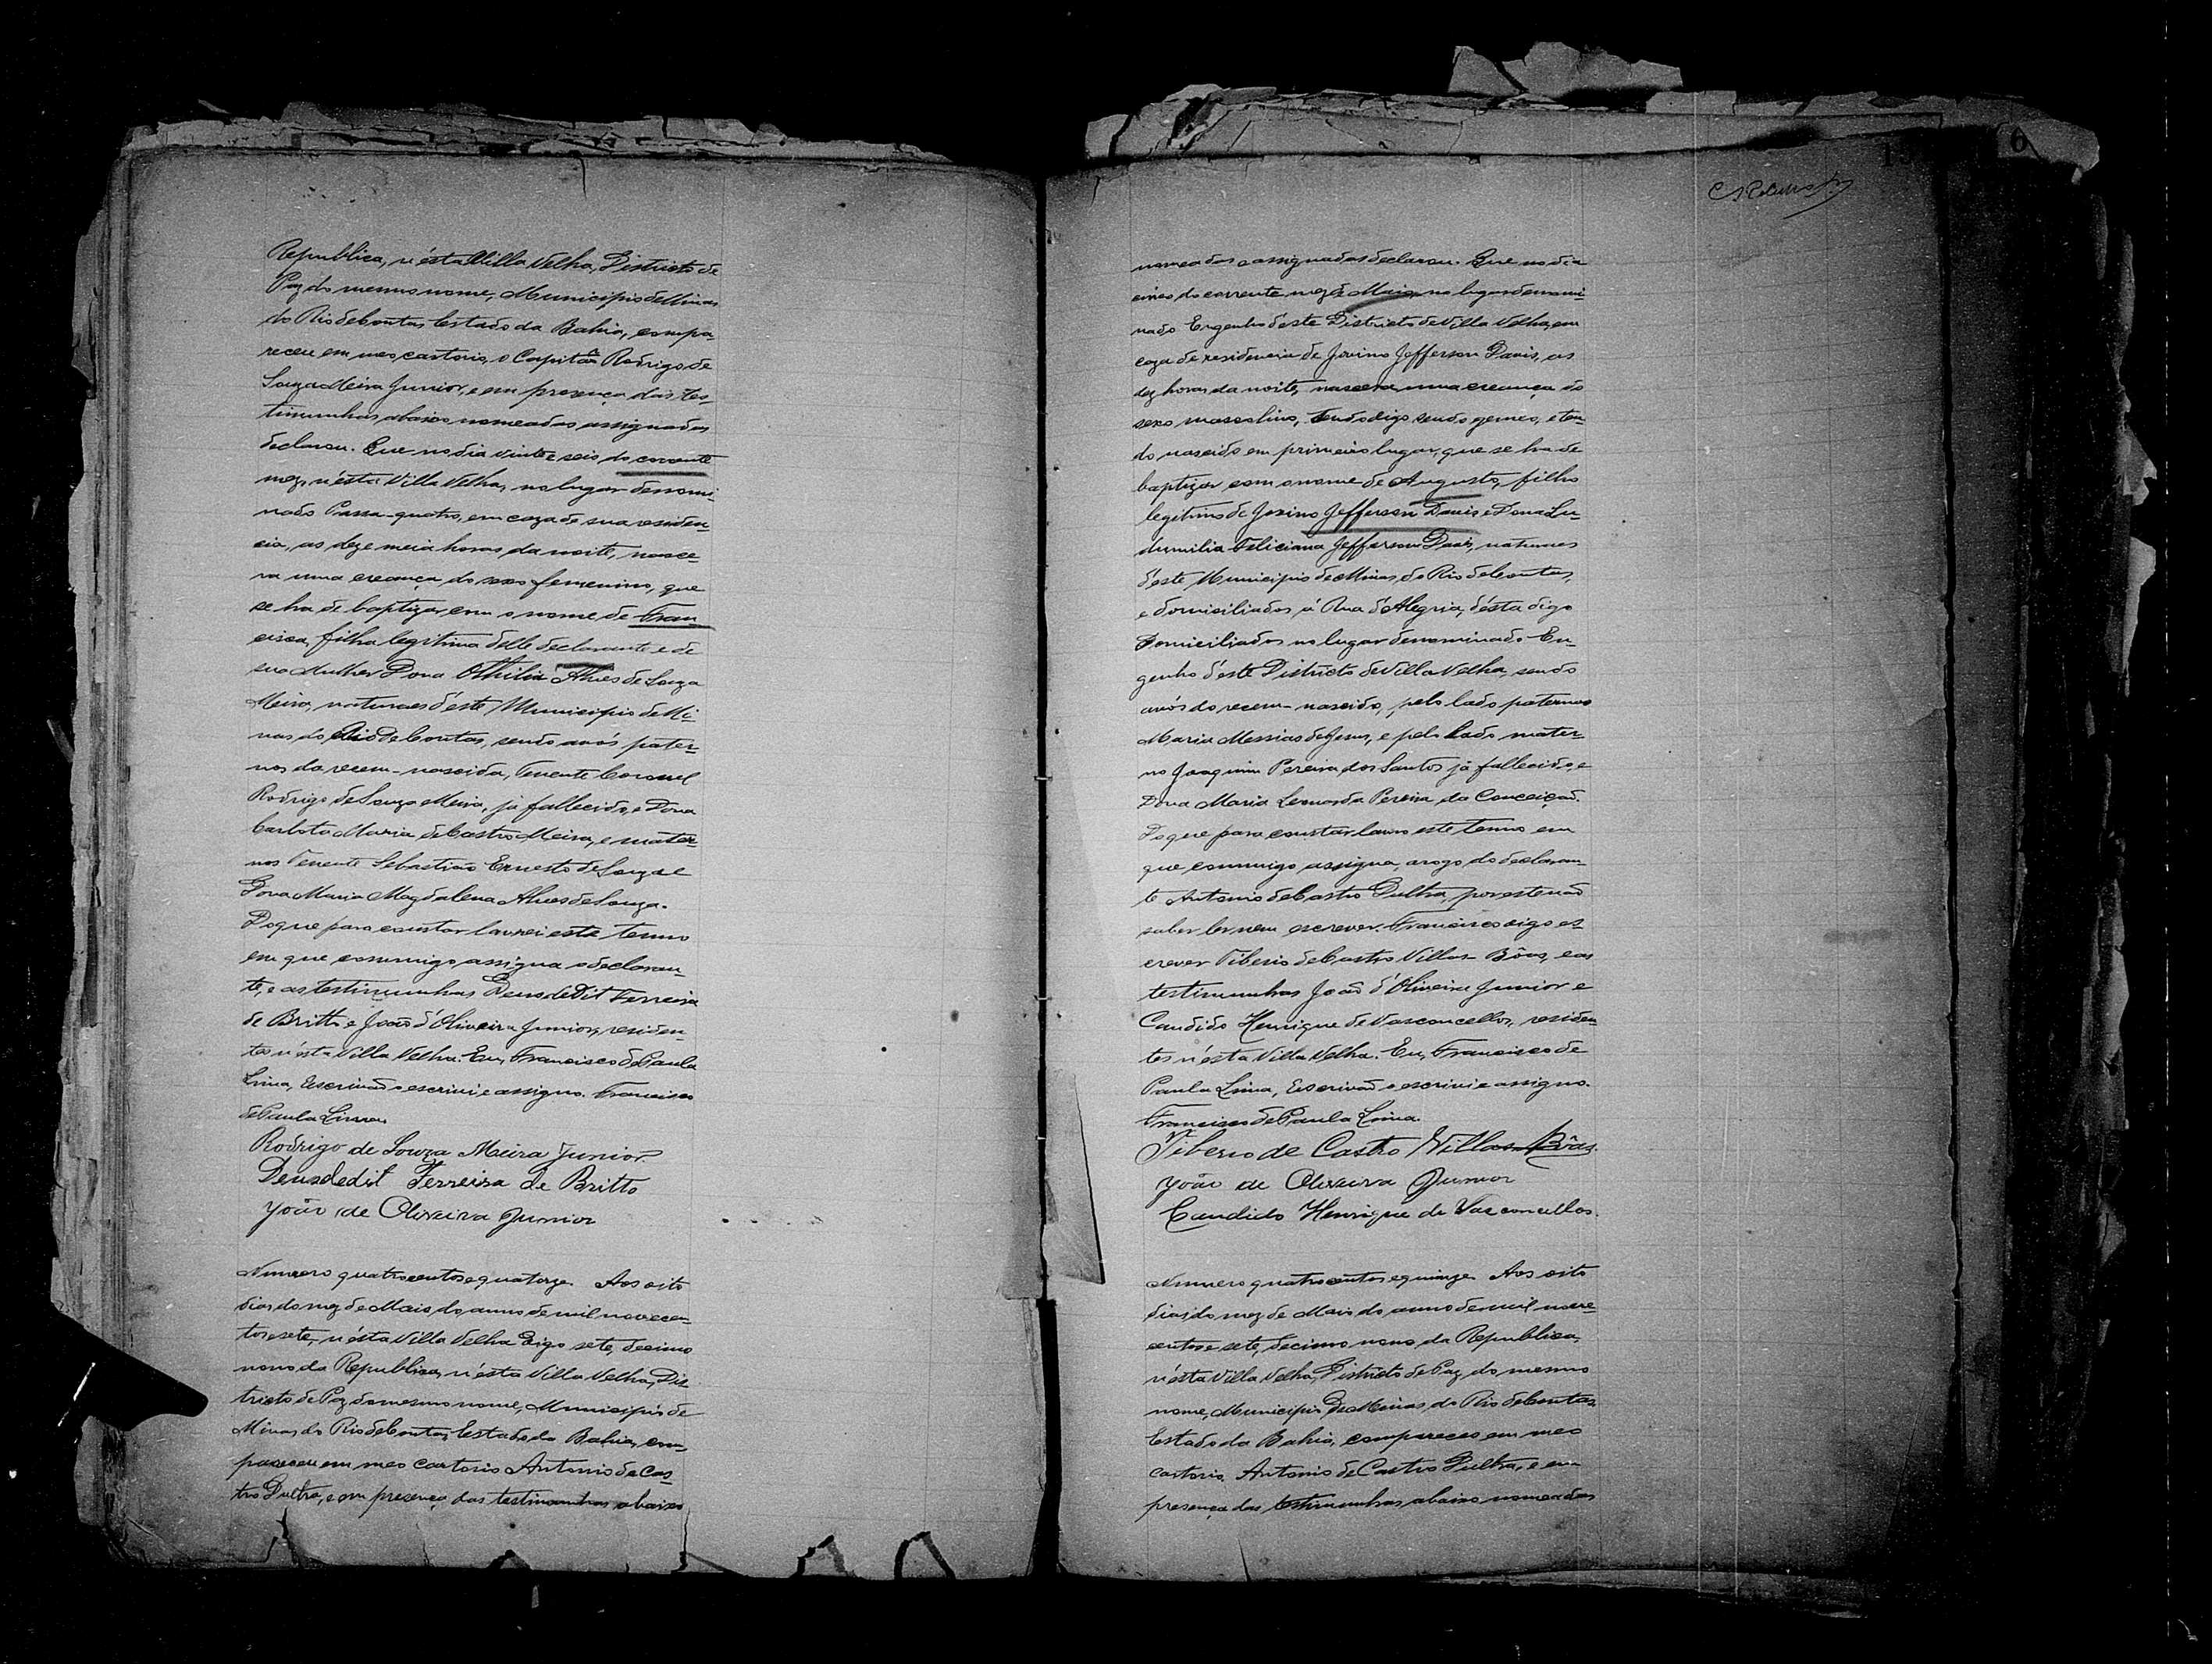 Republica, n'ésta Villa Velha, Districto de
Paz do mesmo nome, Municipio de Minas
do Rio de Contas Estado da Bahia, compa-
receu em meo cartorio, o Capitão Rodrigo de
Souza Meira Junior, e em presença das tes-
timunhas abaixo nomeadas assignadas
declarou. Que no dia vinte e seis do corrente
mez, n'ésta Villa Velha, no lugar denomi-
nado Passa-quatro, em caza de sua residen-
cia, as deze meia horas da noite, nasce-
ra uma creança do sexo femenino, que
se ha de baptizar com o nome de Fran-
cisca, filha legitima delle declarante e de
sua Mulher Dona Othilia Alves de Souza
Meira, naturaes d'éste Municipio de Mi-
nas do Rio de Contas, sendo avós pater-
nos da recem-nascida, Tenente Coronel
Rodrigo de Souza Meira, já fallecido, e Dona
Carlota Maria de Castro Meira, e mater-
nos Tenente Sebastião Ernesto de Souza e
Dona Maria Magdalena Alves de Souza.
Do que para constar lavrei este termo
em que commigo assigna o declaran-
te, e as testimunhas Deusdedit Ferreira
de Britto e João d'Oliveira Junior, residen-
tes n'ésta Villa Velha. Eu, Francisco de Paula
Lima, Escrivão o escrivi e assigno. Francisco
de Paula Lima
Rodrigo de Souza Meira Junior.
Deusdedit Ferreira de Britto
João de Oliveira Junior
Numero quatrocentos e quatorze. Aos oito
dias do mez de Maio do anno de mil novecen-
tos e sete, n'ésta Villa Velha digo sete, decimo
nono da Republica, n'ésta Villa Velha, Dis-
tricto de Paz do mesmo nome, Municipio de
Minas do Rio de Contas Estado da Bahia, com-
pareceu em meo cartorio Antonio de Cas-
tro Dultra, e em presença das testimunhas abaixo
nomeadas assignadas declarou. Que no dia
cinco do corrente mez de Maio, no lugar denomi-
nado Engenho d'éste Districto de Villa Velha, em
caza de residencia de Jovino Jefferson Davis, as
dez horas da noite, nascera uma creança do
sexo mascolino, tendo digo sendo gemeo, e ten-
do nascido em primeiro lugar, que se ha de
baptizar com o nome de Augusto, filho
legitimo de Jovino Jefferson Davis e Dona Lu-
dumilia Feliciana Jefferson Davis, naturaes
d'éste Municipio de Minas do Rio de Contas,
e domiciliados á Rua d'Alegria, d'ésta digo
Domiciliados no lugar denominado En-
genho d'éste Districto de Villa Velha, sendo
avós do recem-nascido, pelo lado paterno
Maria Messias de Jesus, e pelo lado mater-
no Joaquim Pereira dos Santos já fallecido, e
Dona Maria Leonarda Pereira da Conceição.
Do que para constar lavro este termo em
que commigo assigna, arogo do declaran-
te Antonio de Castro Dultra, por este não
saber ler nem escrever. Francisco digo es-
crever Tiberio de Castro Villas-Bôas, e as
testimunhas João d'Oliveira Junior e
Candido Henrique de Vasconcellos, residen-
tes n'ésta Villa Velha. Eu, Francisco de
Paula Lima, Escrivão o escrivi e assigno.
Francisco de Paula Lima.
Tiberio de Castro Villas-Bôas.
João de Oliveira Junior
Candido Henrique de Vasconcellos.
Numero quatrocentos e quinze. Aos oito
dias do mez de Maio do anno de mil nove-
centos e sete, decimo nono da Republica,
n'ésta Villa Velha, Districto de Paz do mesmo
nome, Municipio de Minas do Rio de Contas
Estado da Bahia, compareceo em meo
cartorio, Antonio de Castro Dultra, e em
presença das testimunhas abaixo nomeadas